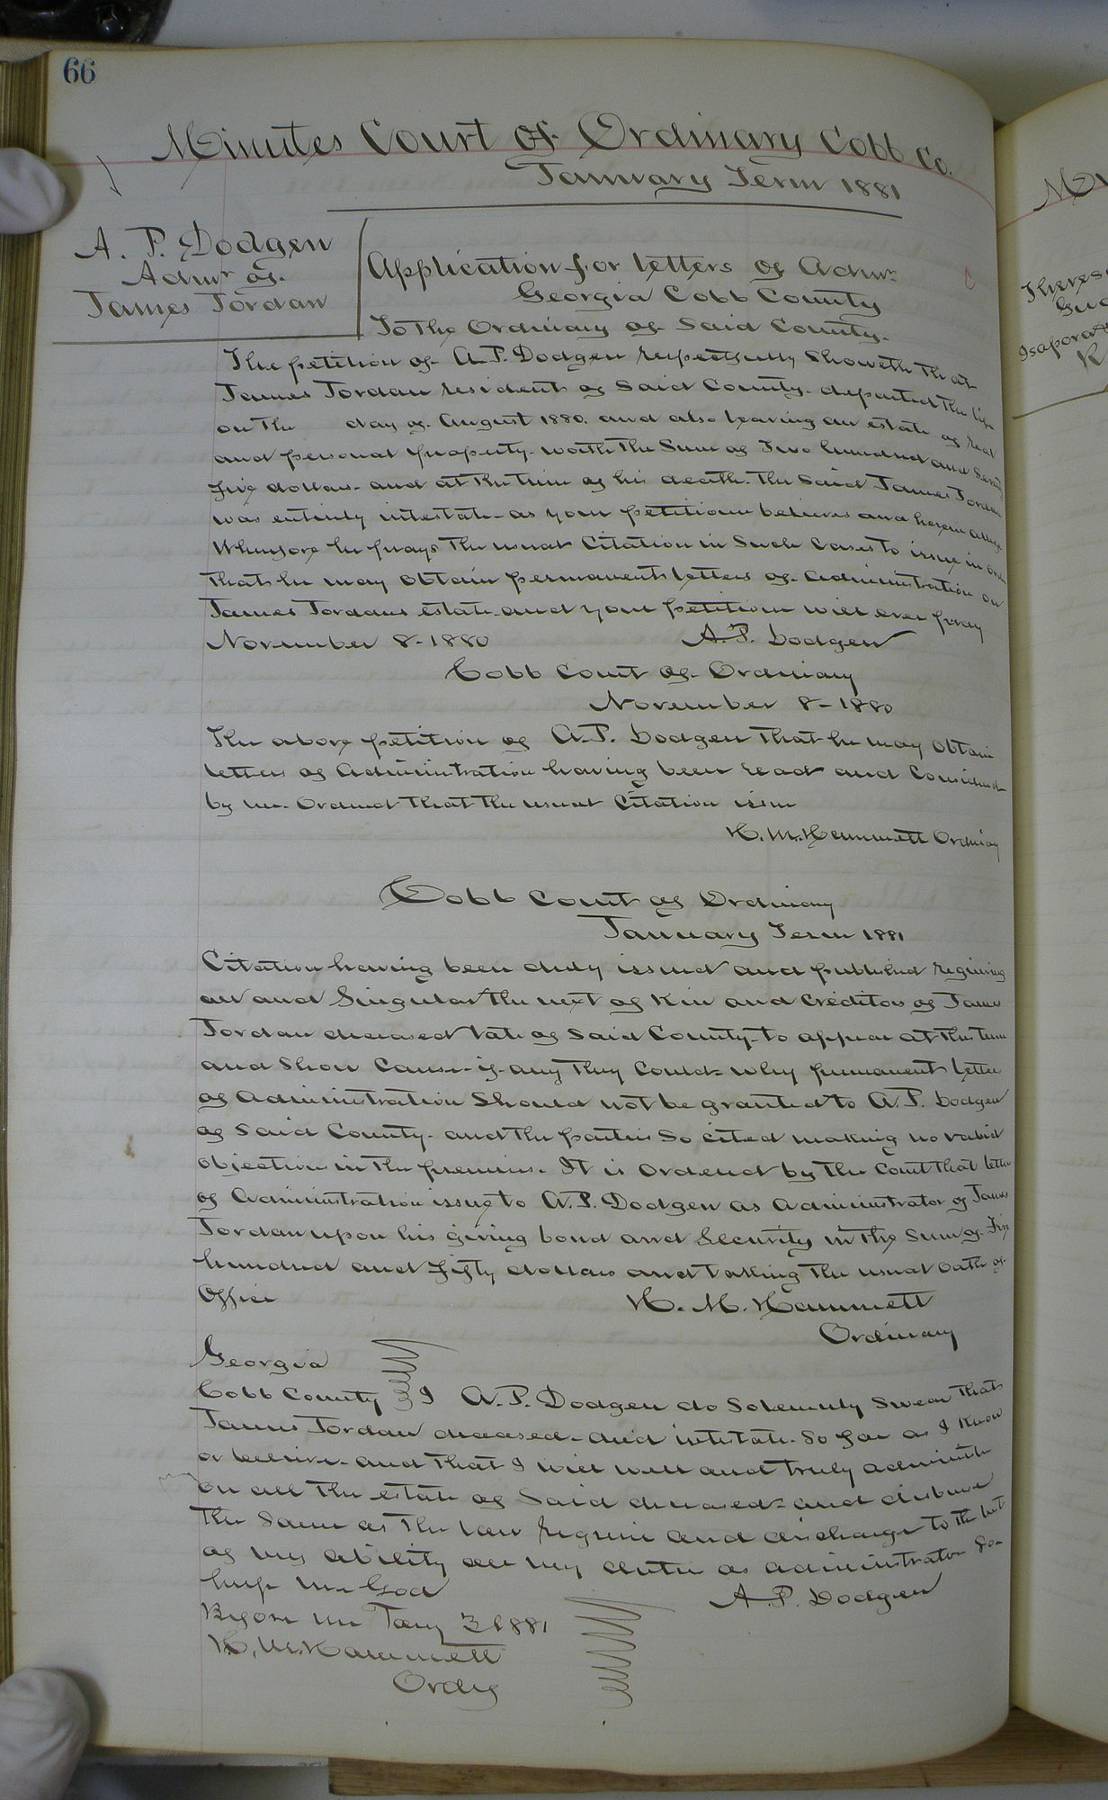 66
Minutes Court of Ordinary Cobb Co.
January Term 1881
A. P. Dodgen
Admr of
James Jordan
Application for letters of Admr
Georgia Cobb County
To The Ordinary of Said County.
The petition of A. P. Dodgen respectfully Showeth That
James Jordan resident of Said County departed This life
on The day of August 1880. and also leaving an estate of real
and personal property worth The Sum of Two hundred and Seventy
five dollars and at The time of his death The Said James Jordan
was entirely intestate as your petitioner believes and herein alleges
Wherefore he prays The usual Citation in Such Cases to issue in order
That he may obtain permanent letters of Administration on
James Jordans estate and your petitioner will ever pray
November 8-1880 A. P. Dodgen
Cobb Court of Ordinary
November 8-1880
The above petition of A. P. Dodgen That he may obtain
letters of Administration having been read and Considered
by me Ordered That The usual Citation issue
H. M. Hammett Ordinary
Cobb Court of Ordinary
January Term 1881
Citation having been duly issued and published requiring
all and Singular The next of Kin and Creditors of James
Jordan deceased late of Said County to appear at This term
and Show Cause if any They Could why permanent letters
of Administration Should not be granted to A. P. Dodgen
of Said County and The parties So cited making no valid
objection in The premises. It is Ordered by The Court That letters
of Administration issue to A. P. Dodgen as Administrator of James
Jordan upon his giving bond and Security in The Sum of Five
hundred and fifty dollars and taking The usual oath of
Office H. M. Hammett
Ordinary
Georgia
Cobb County I A. P. Dodgen do Solemnly Swear That
James Jordan deceased died intestate So far as I Know
or believe and That I will well and truly administer
on all The estate of Said deceased and disburse
The Same as The law require and discharge to The best
of my ability all my duties as administrator So
help me God A. P. Dodgen
Before me Jany 3 1881
H. M. Hammett
Ordy